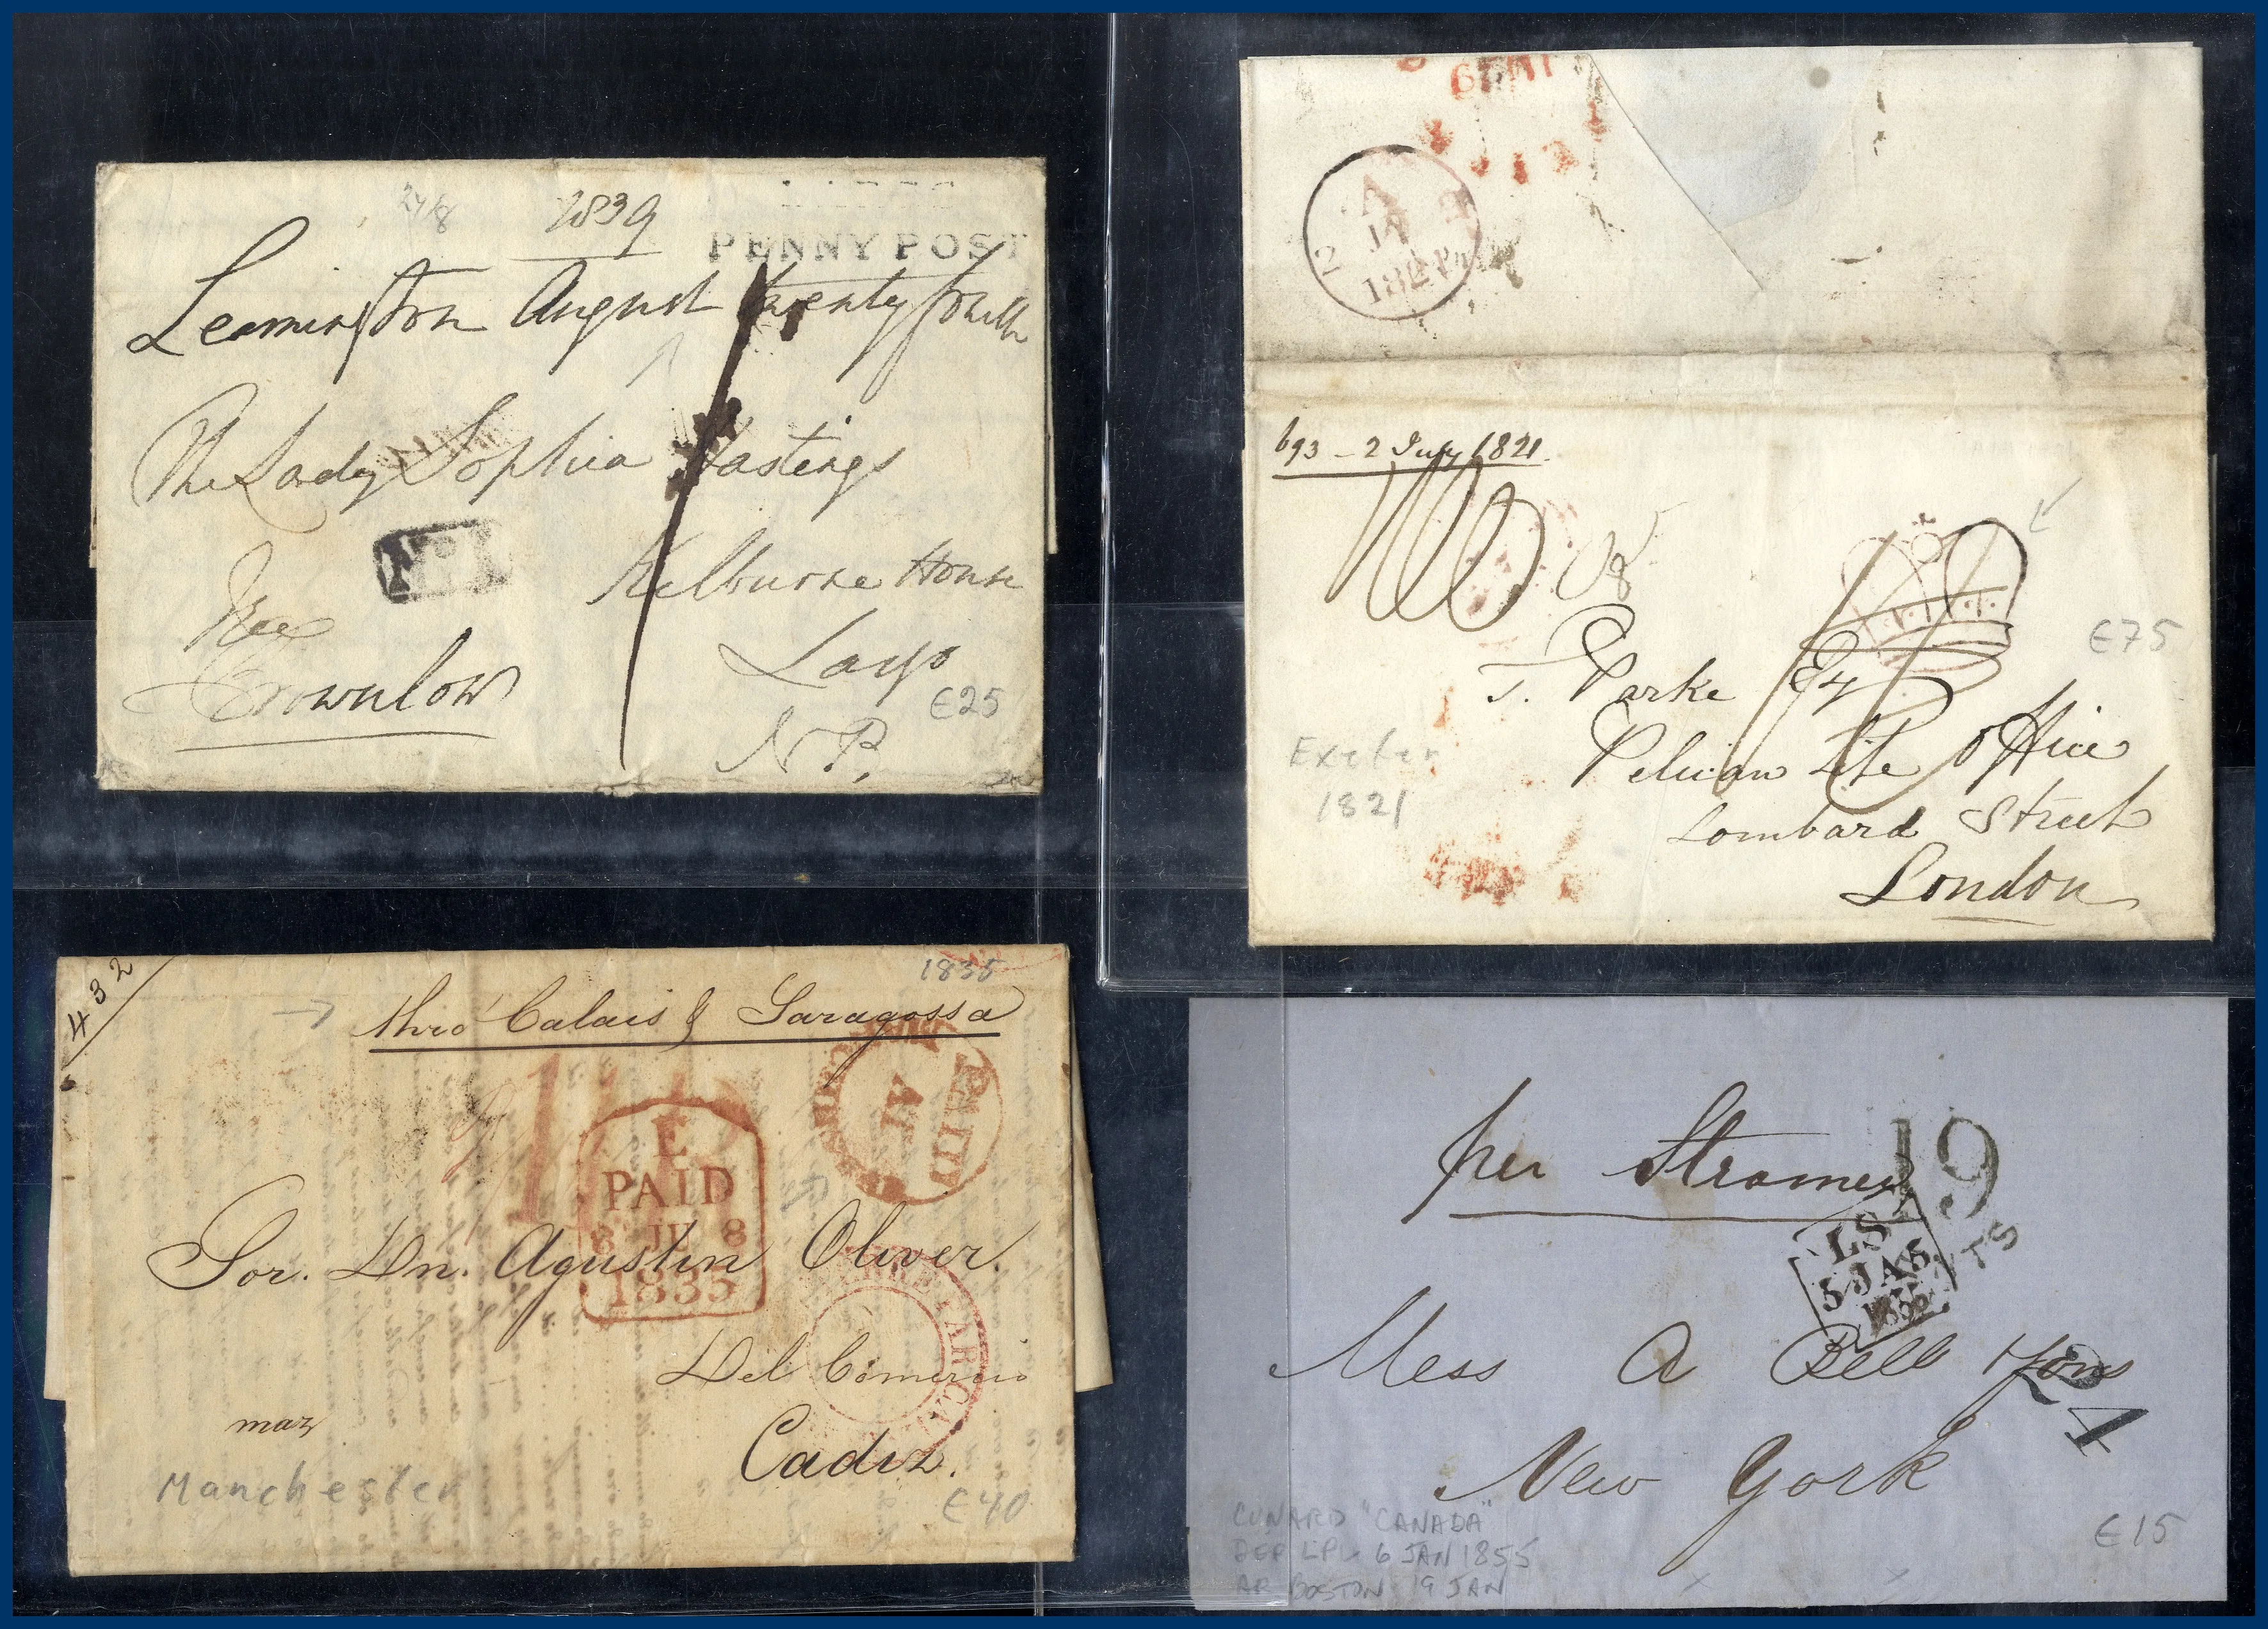 1839
PENNY POST
Leamington August twenty fourth
The Lady Sophia Hastings
No 1
Kelburne House
Free
Largs
Brownlow
€25
N.B.
A
2 JY
1821
693 - 2 July 1821.
T. Parke Esq
€75
Pelican Life Office
Exeter
1821
Lombard Street
London
432
1835
thro' Calais & Saragossa
PAID
E
PAID
8 JU 8
1835
Sor. Dn. Agustin Oliver.
Del Comercio
Cadiz.
Manchester
€40
per Steamer
19
CTS
LS
5 JA 5
1855
Mess A Bell & Sons
New York
CUNARD "CANADA"
DEP L'PL 6 JAN 1855
AR BOSTON 19 JAN
€15